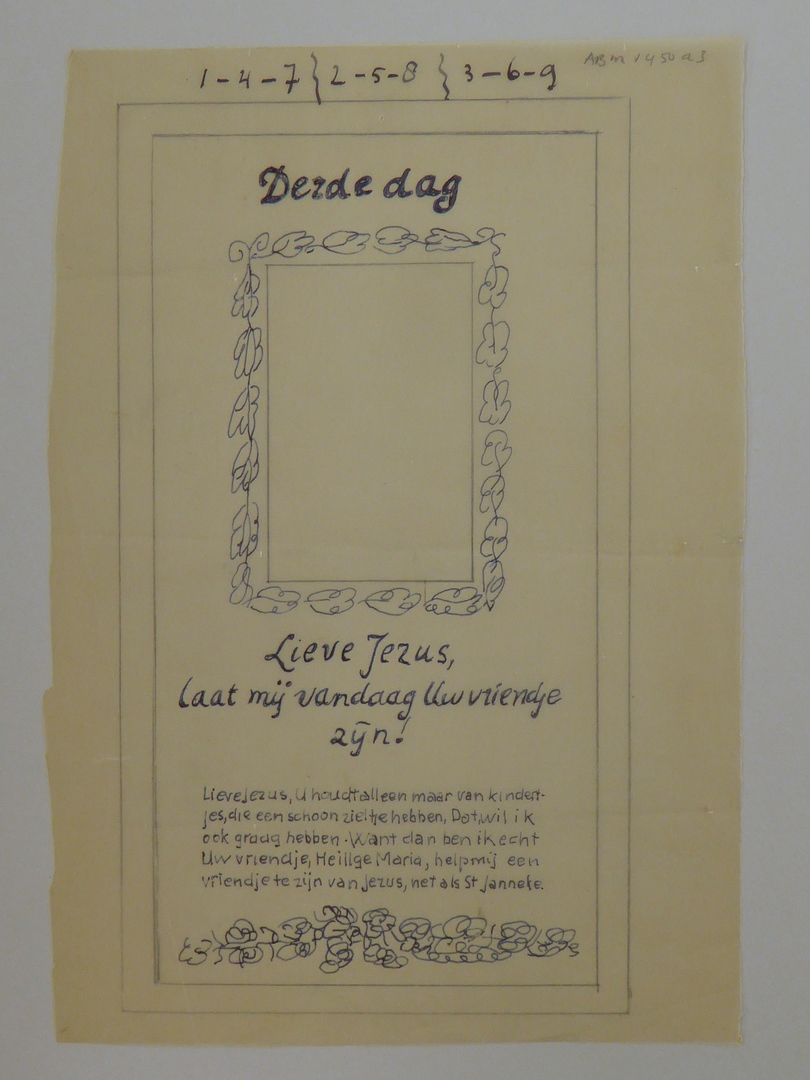 ABM v450a3
1-4-7}2-5-8}3-6-9
Derde dag
Lieve Jezus,
laat mij vandaag Uw vriendje
zijn!
Lieve Jezus, U houdt alleen maar van kindert-
jes, die een schoon zieltje hebben, Dat wil ik
ook graag hebben. Want dan ben ik echt
Uw vriendje, Heilige Maria, help mij een
vriendje te zijn van Jezus, net als St Janneke.